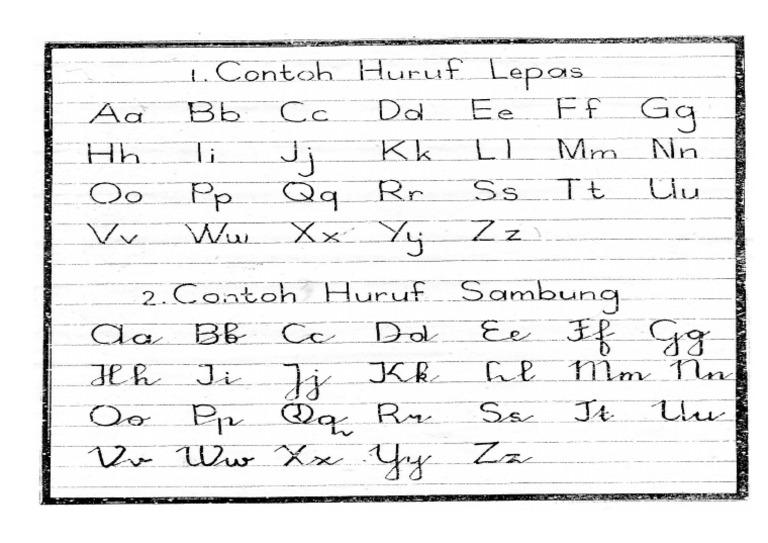 1. Contoh Huruf Lepas
Aa Bb Cc Dd Ee Ff Gg
Hh Ii Jj Kk Ll Mm Nn
Oo Pp Qq Rr Ss Tt Uu
Vv Ww Xx Yy Zz
2. Contoh Huruf Sambung
Aa Bb Cc Dd Ee Ff Gg
Hh Ii Jj Kk Ll Mm Nn
Oo Pp Qq Rr Ss Tt Uu
Vv Ww Xx Yy Zz